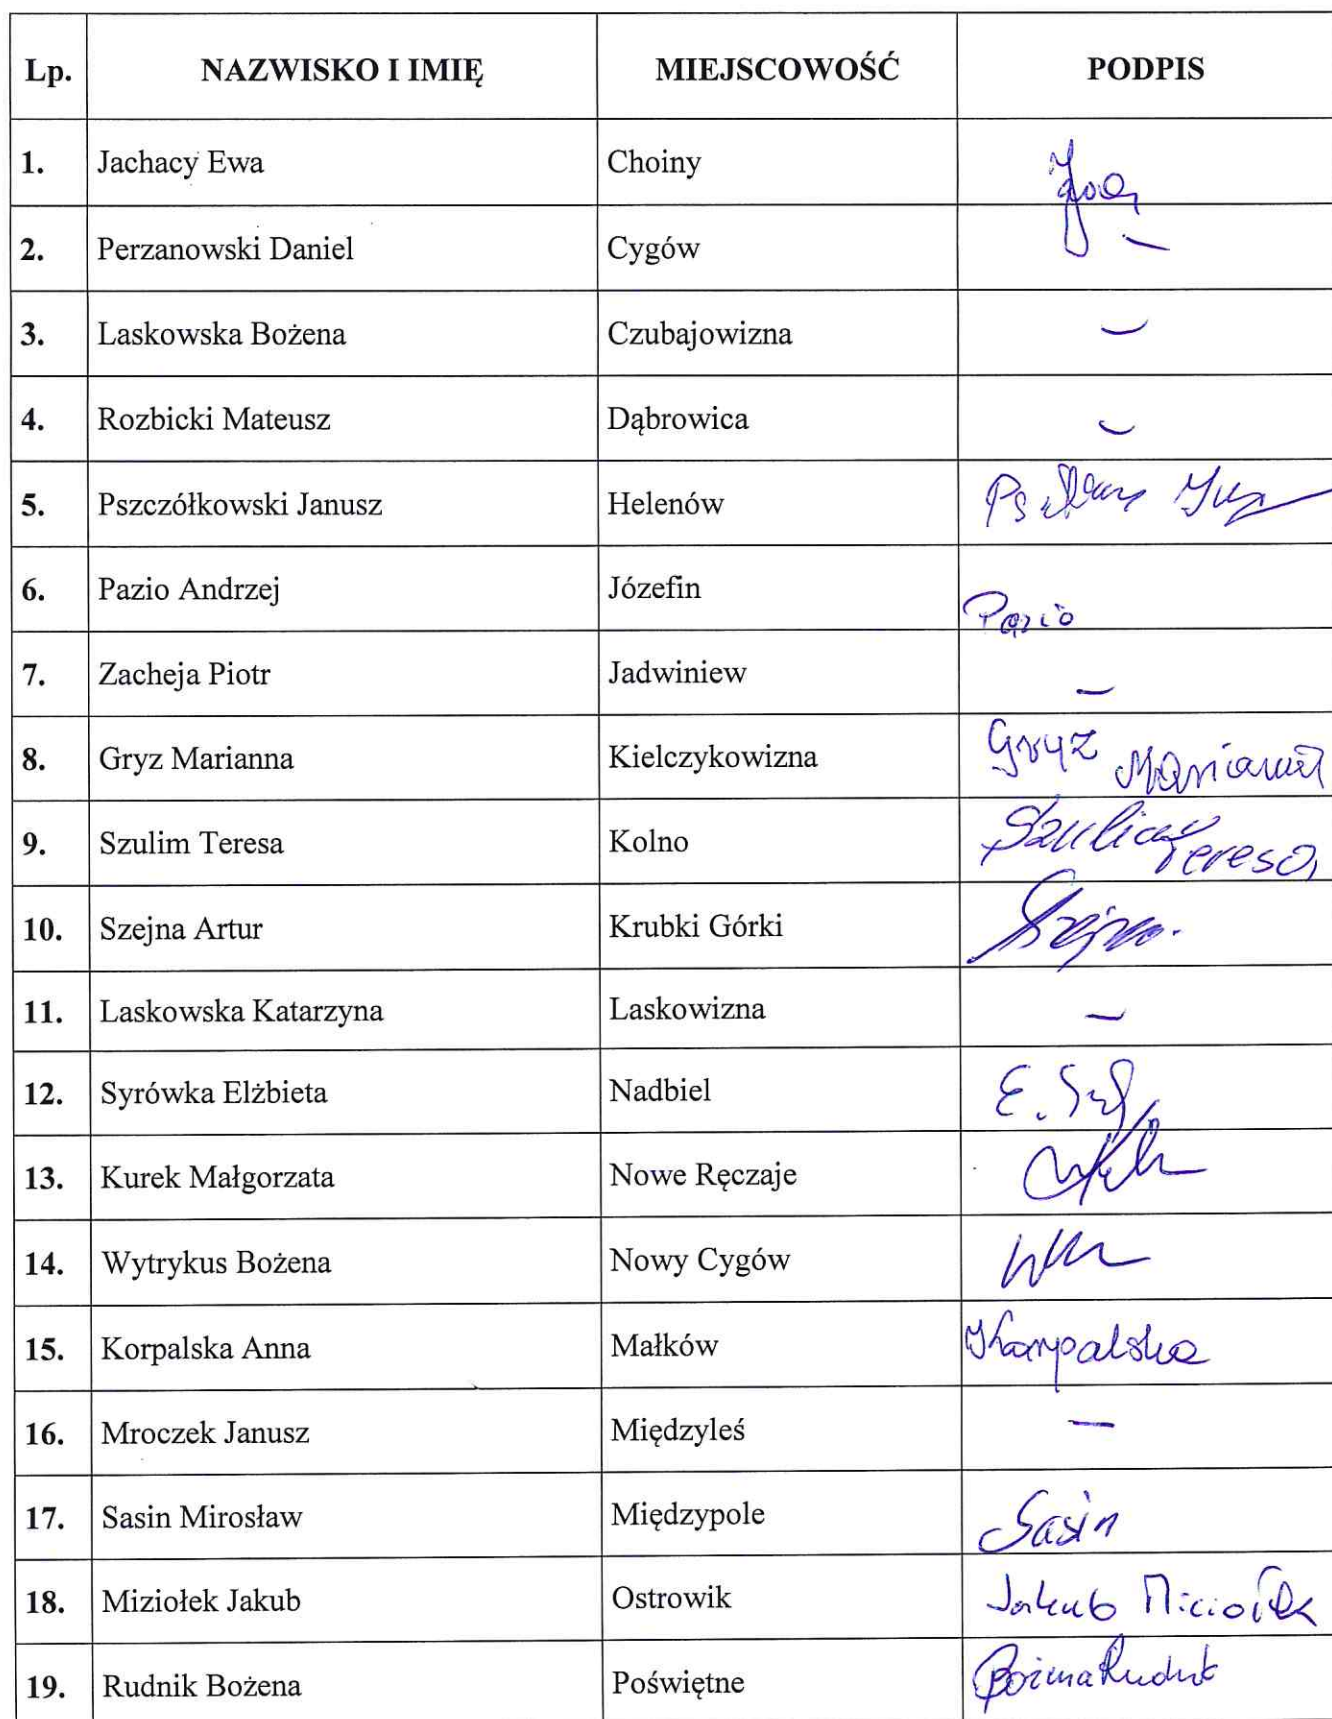 Lp. NAZWISKO I IMIĘ MIEJSCOWOŚĆ PODPIS
1. Jachacy Ewa Choiny
2. Perzanowski Daniel Cygów —
3. Laskowska Bożena Czubajowizna —
4. Rozbicki Mateusz Dąbrowica —
5. Pszczółkowski Janusz Helenów
6. Pazio Andrzej Józefin Pazio
7. Zacheja Piotr Jadwiniew —
8. Gryz Marianna Kielczykowizna Gryz Marianna
9. Szulim Teresa Kolno Szulim Teresa
10. Szejna Artur Krubki Górki Szejna
11. Laskowska Katarzyna Laskowizna —
12. Syrówka Elżbieta Nadbiel E.
13. Kurek Małgorzata Nowe Ręczaje
14. Wytrykus Bożena Nowy Cygów
15. Korpalska Anna Małków Korpalska
16. Mroczek Janusz Międzyleś —
17. Sasin Mirosław Międzypole Sasin
18. Miziołek Jakub Ostrowik Jakub Miziołek
19. Rudnik Bożena Poświętne Bożena Rudnik